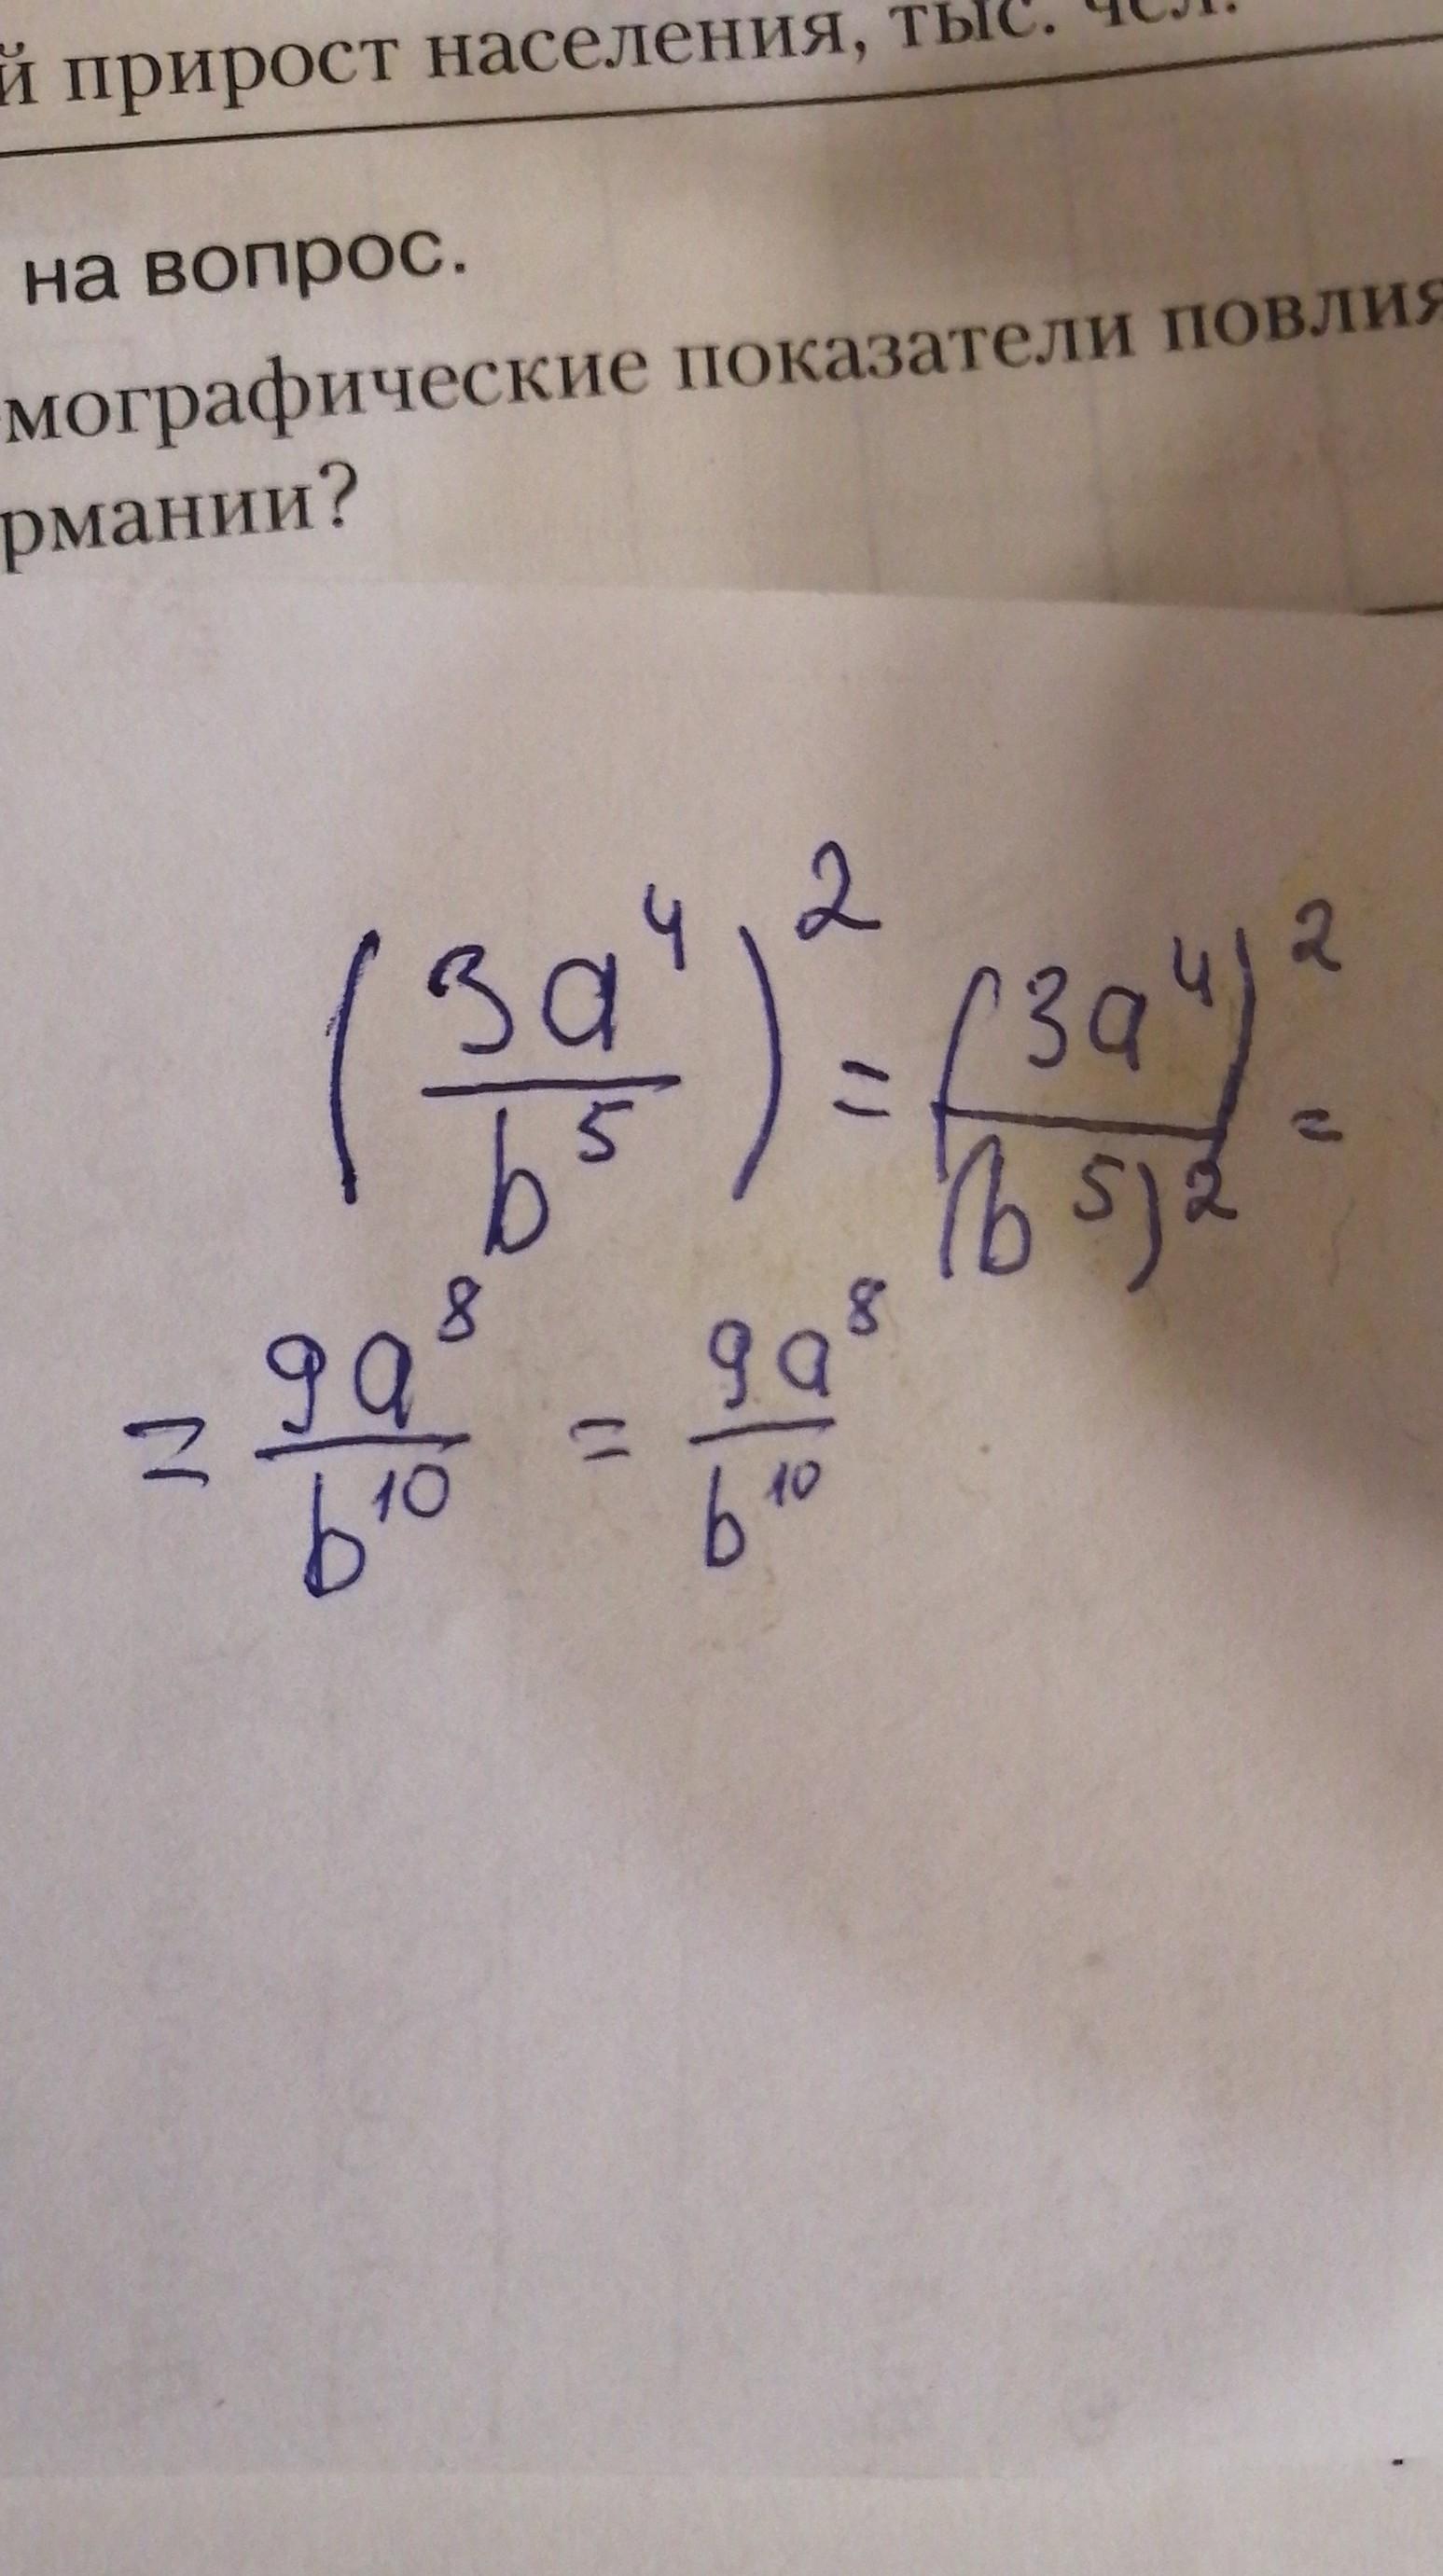 й прирост населения, тыс. чел.
на вопрос.
мографические показатели повлия
рмании?
(3a⁴/b⁵)² = (3a⁴)²/(b⁵)² =
= 9a⁸/b¹⁰ = 9a⁸/b¹⁰